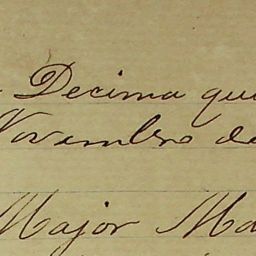 Decima qui
Novembro de
Major Ma